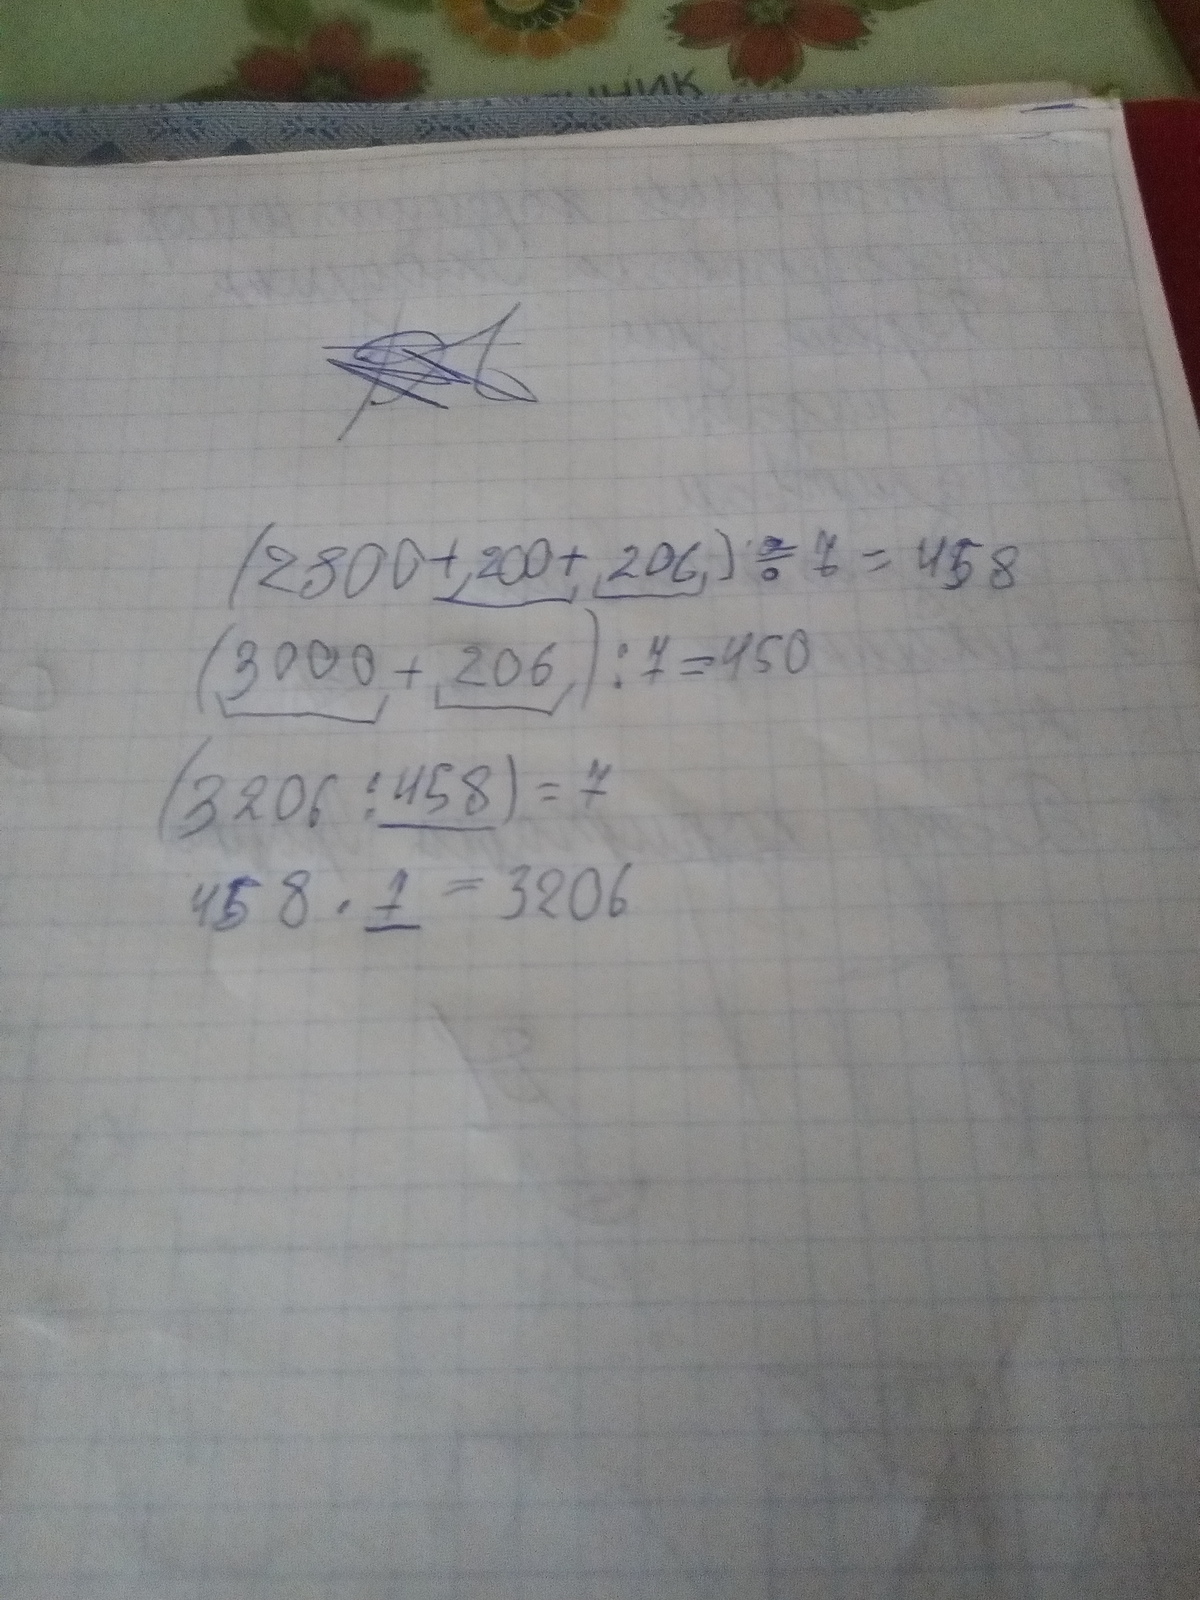 ННИК
(2800+200+206) ÷ 7 = 458
(3000 + 206) : 7 = 450
(3206 : 458) = 7
458 · 7 = 3206